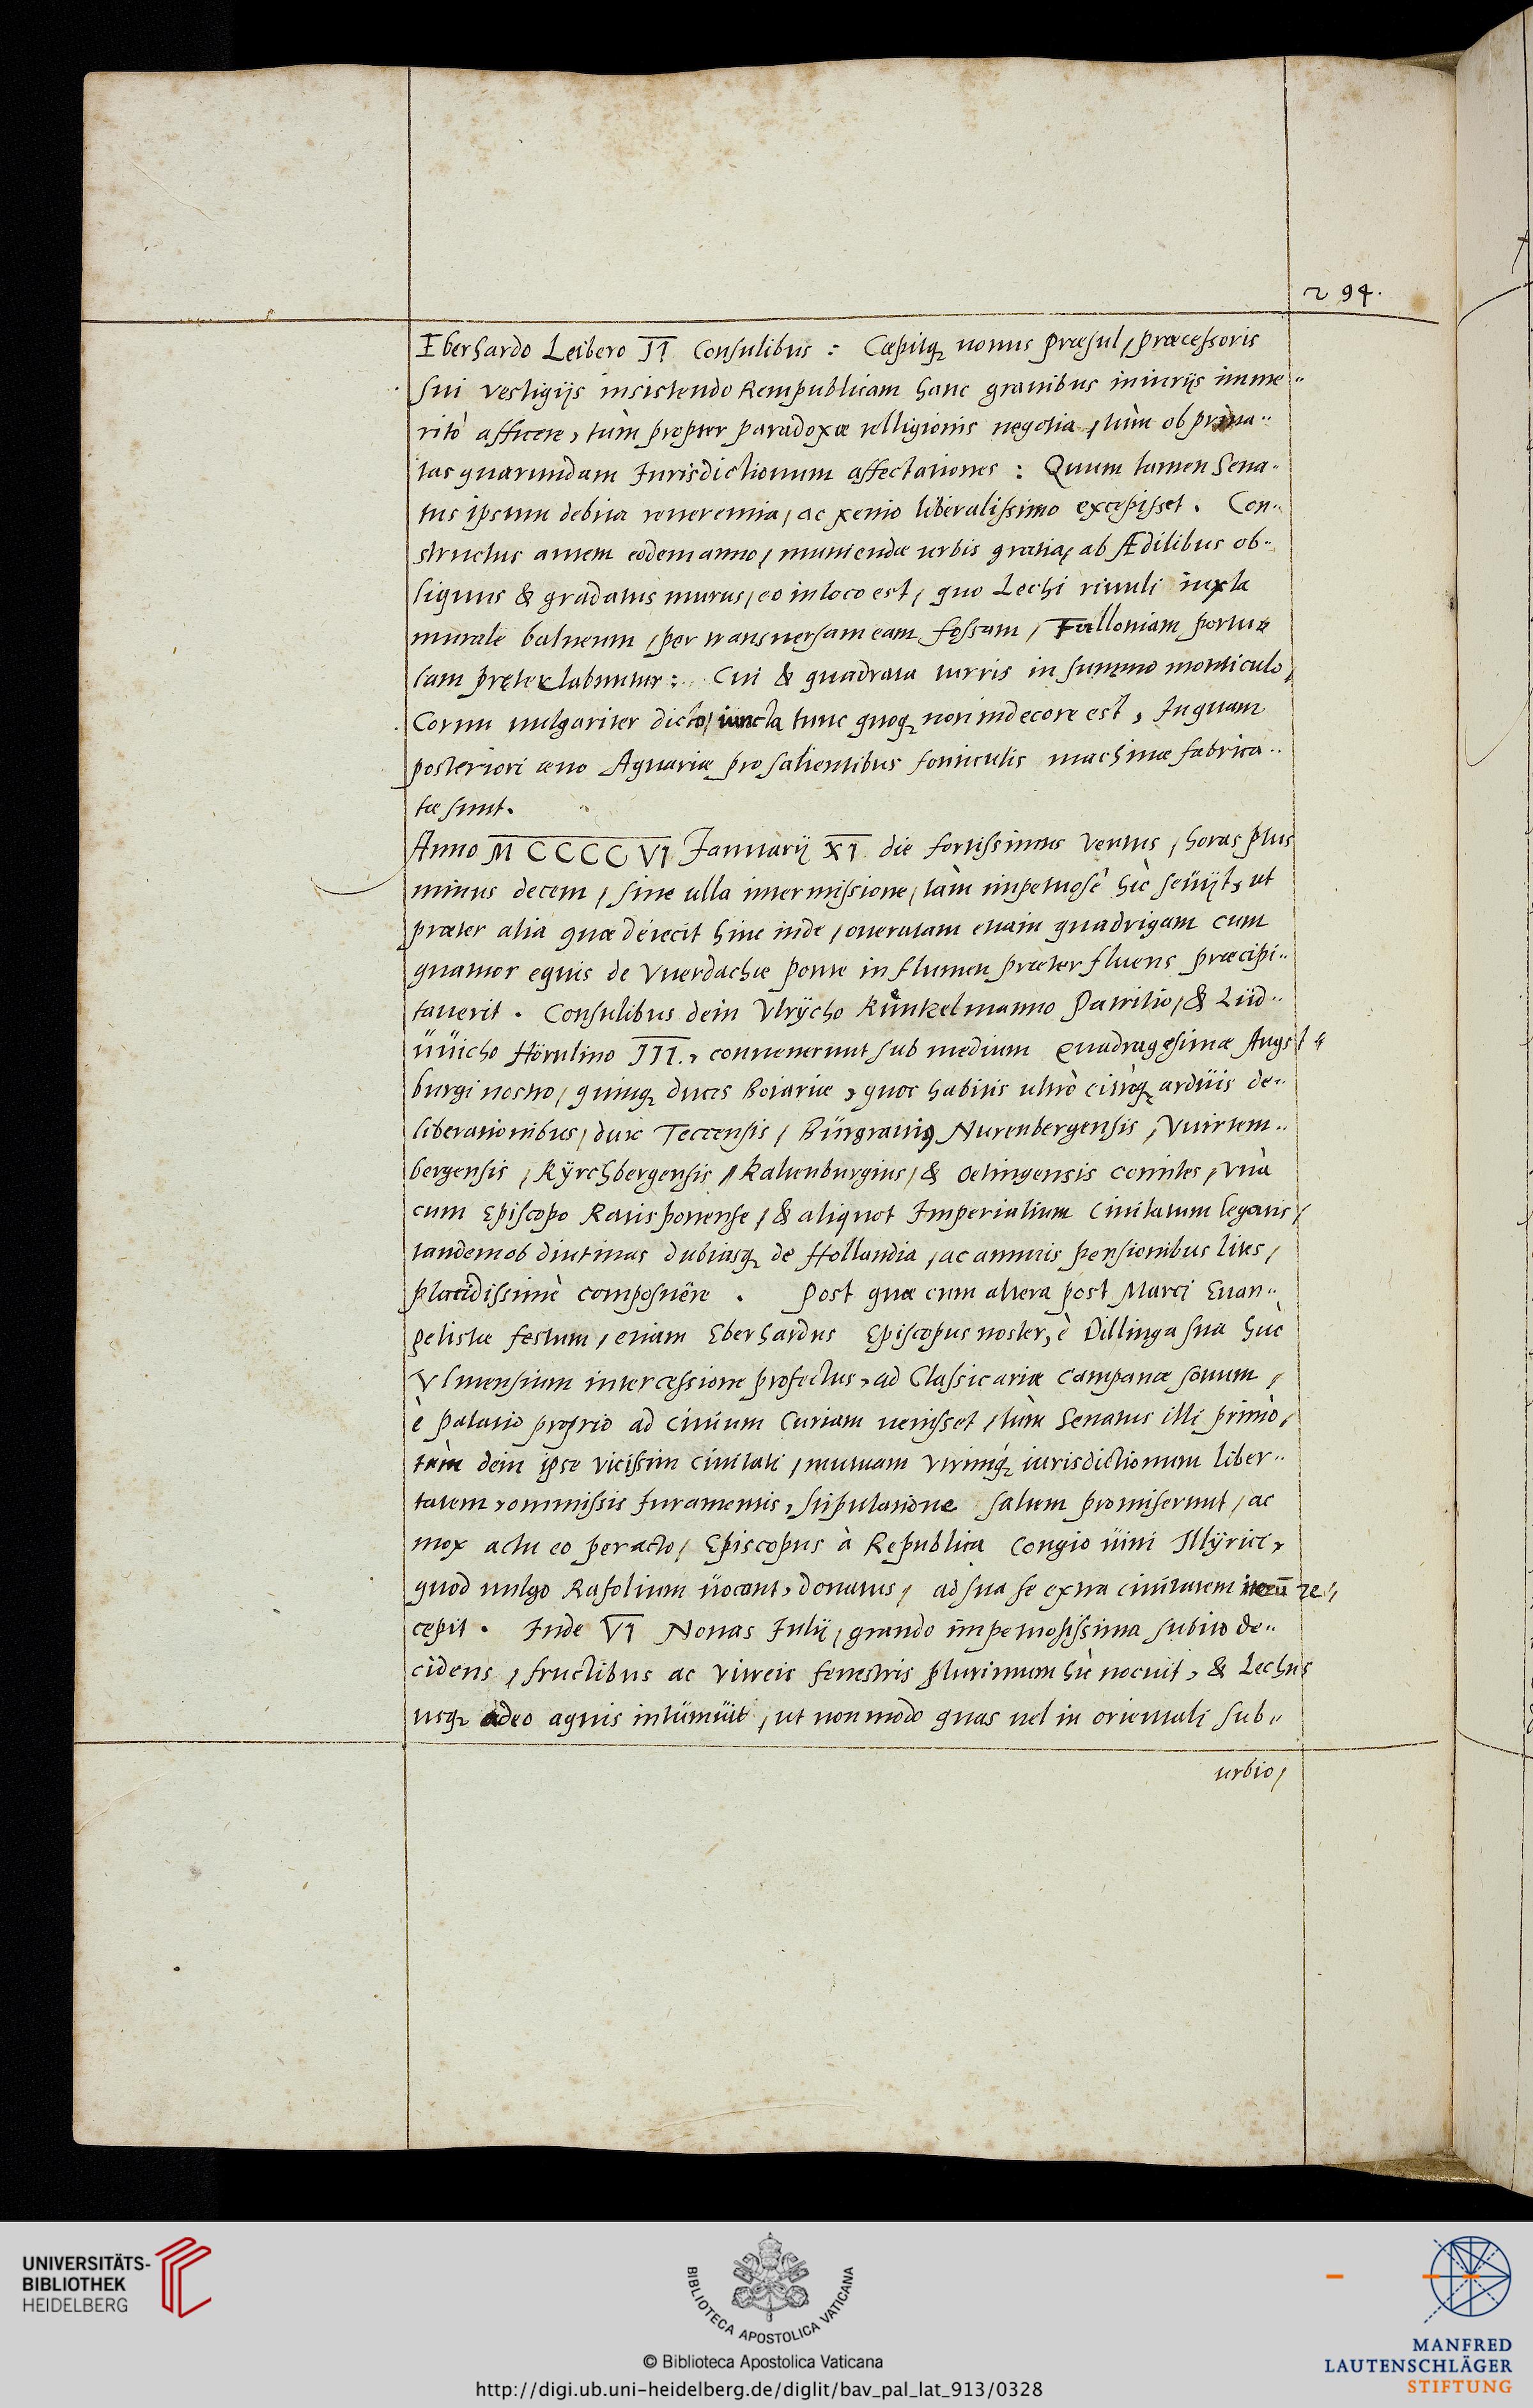 294.
Eberhardo Leibero II Consulibus : Cæpitq; nouus præsul, præcessoris
sui vestigijs insistendo Rempublicam hanc grauibus iniurijs imme-
ritò afficere, tùm propter paradoxæ relligionis negotia, tùm ob priua-
tas quarundam Iurisdictionum affectationes : Quum tamen Sena-
tus ipsum debita reuerentia, ac xenio liberalissimo excepisset. Con-
structus autem eodem anno, muniendæ urbis gratia, ab Ædilibus ob-
liquus & gradatus murus, eo in loco est, quo Lechi riuuli iuxta
murale balneum, per transuersam eam fossam, Fulloniam portu-
lam præterlabuntur : Cui & quadrata turris in summo monticulo,
Cornu uulgariter dicto, iuncta tunc quoq; non indecore est, In quam
posteriori æuo Aquariæ pro salientibus fonticulis machinæ fabrica-
tæ sunt.
Anno M CCCC VI Januarij XI die fortissimus ventus, horas plus
minus decem, sine ulla intermissione, tàm impetuosè hìc sëuijt, ut
præter alia quæ deiecit hinc inde, oneratam etiam quadrigam cum
quatuor equis de Vuerdachæ ponte in flumen præterfluens præcipi-
tauerit. Consulibus dein Vlrÿcho Kůnkelmanno Patritio, & Lüd-
üuicho Hörnlino III., conuenerunt sub medium Quadragesimæ Augst-
burgi nostro, quinq; duces Boiariæ, quos habitis ultrò citròq; arduis de-
liberationibus, dux Teccensis, Burgrauiꝰ Nurenbergensis, Vuirtem-
bergensis, Kÿrchbergensis, Kalenburgius, & Oetingensis comites, vnà
cum Episcopo Ratisponense, & aliquot Imperialium Ciuitatum legatis,
tandem ob diutinas dubiasq; de Hollandia, ac annuis pensionibus lites,
placidissimè composuêre. Post quæ cum altera post Marci Euan-
gelistæ festum, etiam Eberhardus Episcopus noster, è Dillinga sua hùc
Vlmensium intercessione profectus, ad Classicariæ Campanæ sonum,
è palatio proprio ad ciuium Curiam uenisset, tùm Senatus illi primò,
tùm dein ipse vicissim ciuitati, mutuam vtrinq; iurisdictionum liber-
tatem, ommissis Iuramentis, stipulatione saltem promiserunt, ac
mox actu eo peracto, Episcopus à Republica Congio üini Illÿrici,
quod uulgo Rafolium üocant, donatus, ad sua se extra ciuitatem re-
cepit. Inde VI Nonas Julij, grando impetuosissima subito de-
cidens, fructibus ac vitreis fenestris plurimum hìc nocuit, & Lechus
usq; adeo aquis intümüit, ut non modo quas uel in orientali sub-
urbio,
UNIVERSITÄTS-
BIBLIOTHEK
HEIDELBERG
BIBLIOTECA APOSTOLICA VATICANA
© Biblioteca Apostolica Vaticana
http://digi.ub.uni-heidelberg.de/diglit/bav_pal_lat_913/0328
MANFRED
LAUTENSCHLÄGER
STIFTUNG